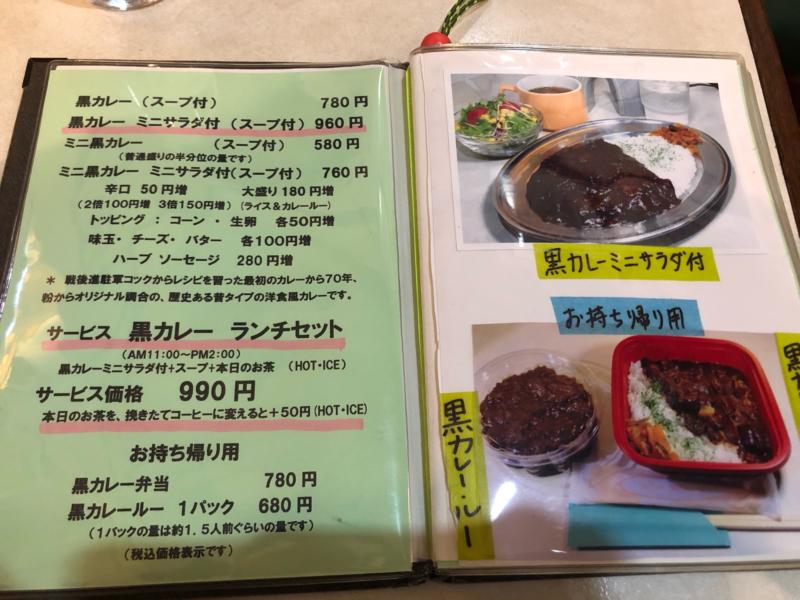 黒カレー (スープ付) 780円
黒カレー ミニサラダ付 (スープ付) 960円
ミニ黒カレー (スープ付) 580円
(普通盛りの半分位の量です)
ミニ黒カレー ミニサラダ付(スープ付) 760円
辛口 50円増 大盛り180円増
(2倍100円増 3倍150円増) (ライス&カレールー)
トッピング : コーン ・ 生卵 各50円増
味玉・ チーズ・ バター 各100円増
ハーブ ソーセージ 280円増
* 戦後進駐軍コックからレシピを習った最初のカレーから70年、
粉からオリジナル調合の、歴史ある昔タイプの洋食風カレーです。
サービス 黒カレー ランチセット
(AM11:00~PM2:00)
黒カレーミニサラダ付+スープ+本日のお茶 (HOT・ICE)
サービス価格 990円
本日のお茶を、挽きたてコーヒーに変えると+50円(HOT・ICE)
お持ち帰り用
黒カレー弁当 780円
黒カレールー 1パック 680円
(1パックの量は約1.5人前ぐらいの量です)
(税込価格表示です)
黒カレーミニサラダ付
お持ち帰り用
黒カレールー